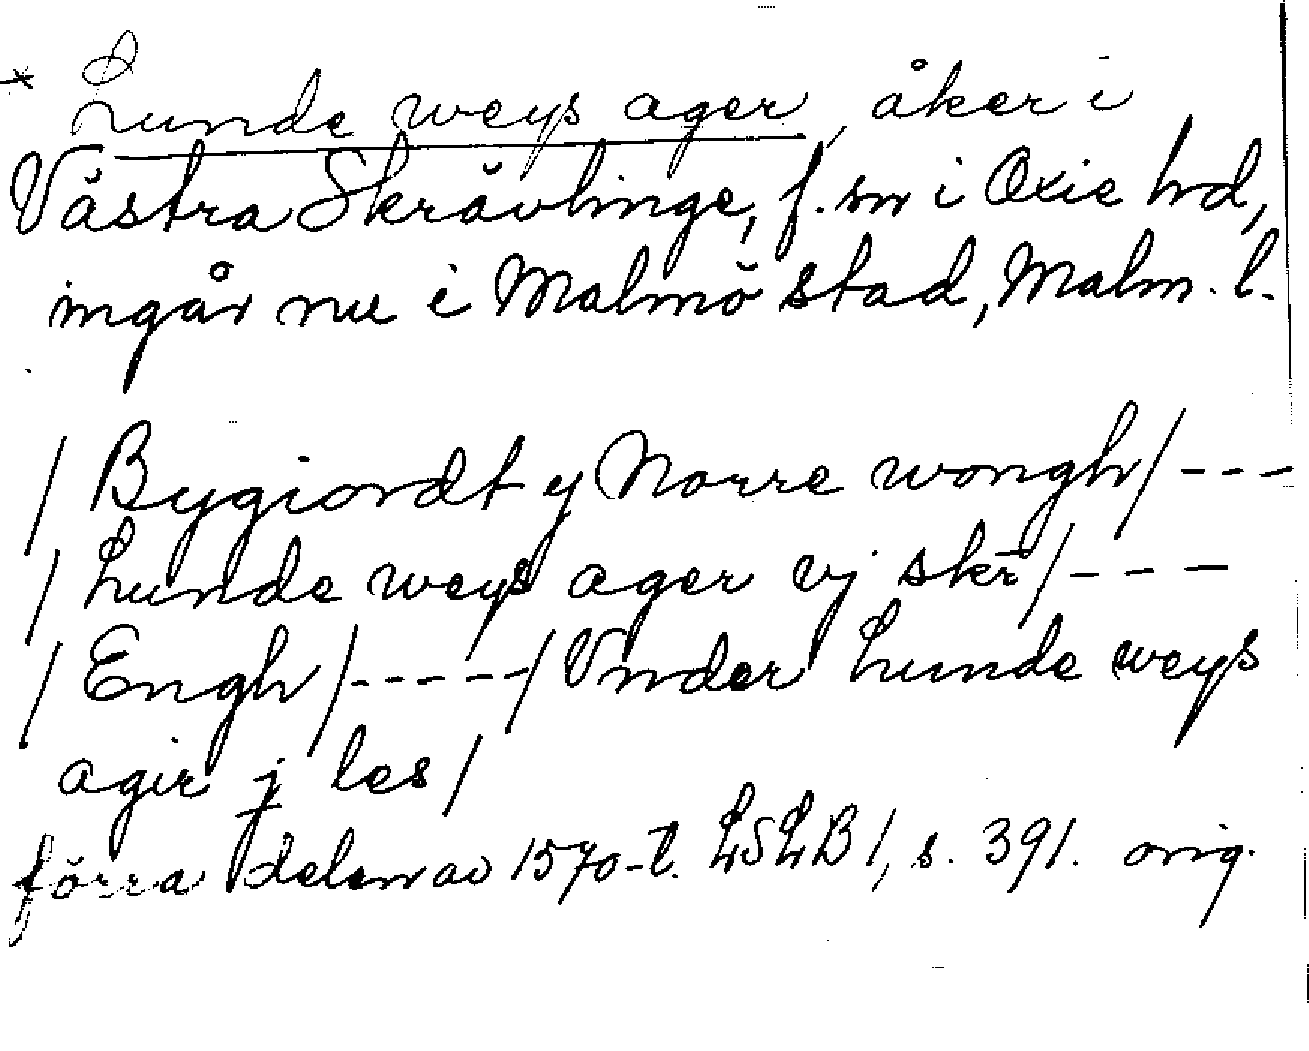 * Lunde weys ager, åker i
Västra Skrävlinge, f. sn i Oxie hd,
ingår nu i Malmö stad, Malm. l.
/ Bygiordt y Norre wongh / ---
/ Lunde weys ager vj skr̄ / ---
/ Engh / ----- / Vnder Lunde weys
agir j les /
förra delen av 1570-t. LSLB 1, s. 391. orig.